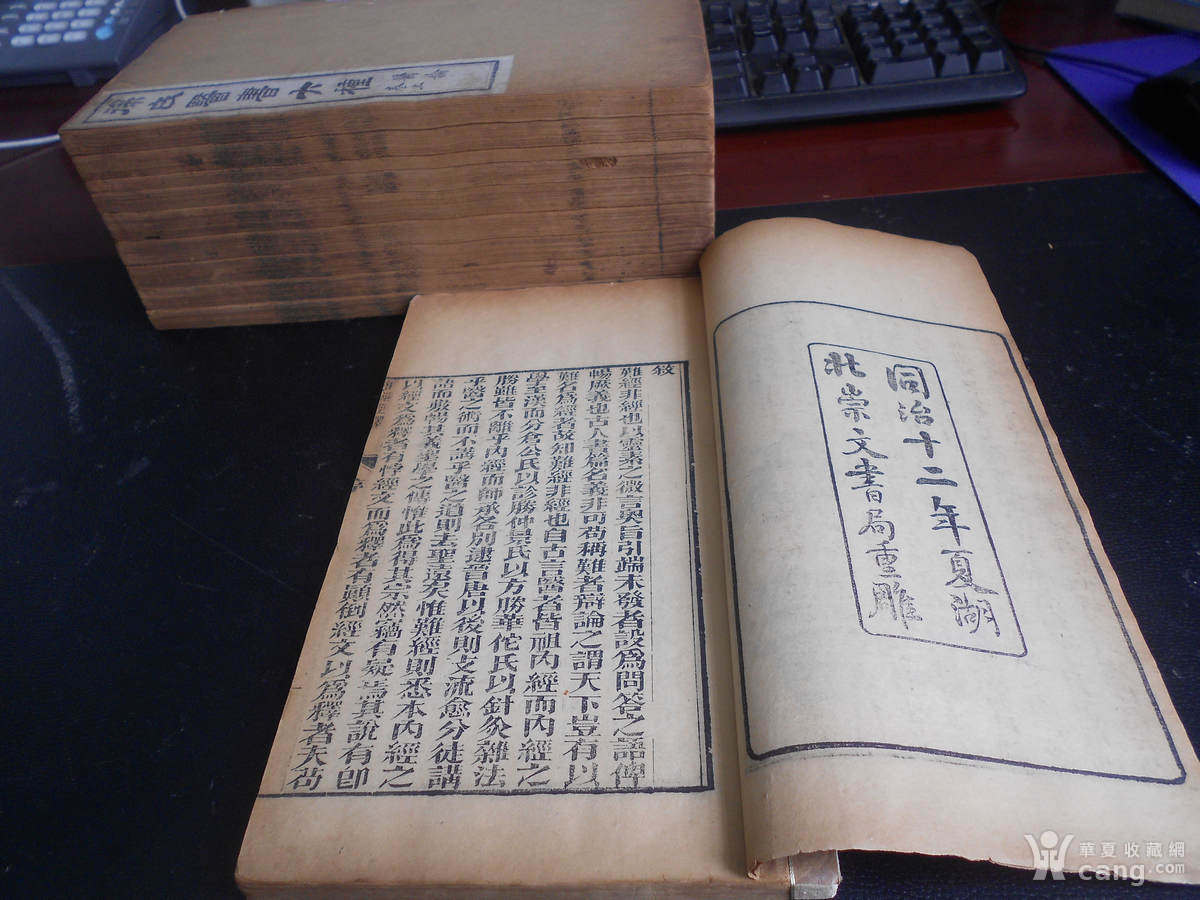 徐氏醫書六種
同治十二年夏湖
北崇文書局重雕
敘
難經非經也以靈素之微言奧旨引端未發者設爲問答之語俾
暢厥義也古人書篇名義非可苟稱難者辯論之謂天下豈有以
難名爲經者故知難經非經也自古言醫者皆祖內經而內經之
學至漢而分倉公氏以診勝仲景氏以方勝華佗氏以針灸雜法
勝雖皆不離乎內經而師承各別逮晉唐以後則支流愈分徒講
乎醫之術而不講乎醫之道則去聖遠矣惟難經則悉本內經之
語而敷暢其義聖學之傳惟此爲得其宗然竊有疑焉其說有卽
以經文爲釋者有悖經文而爲釋者有顚倒經文以爲釋者夫苟
華夏收藏網
cang.com